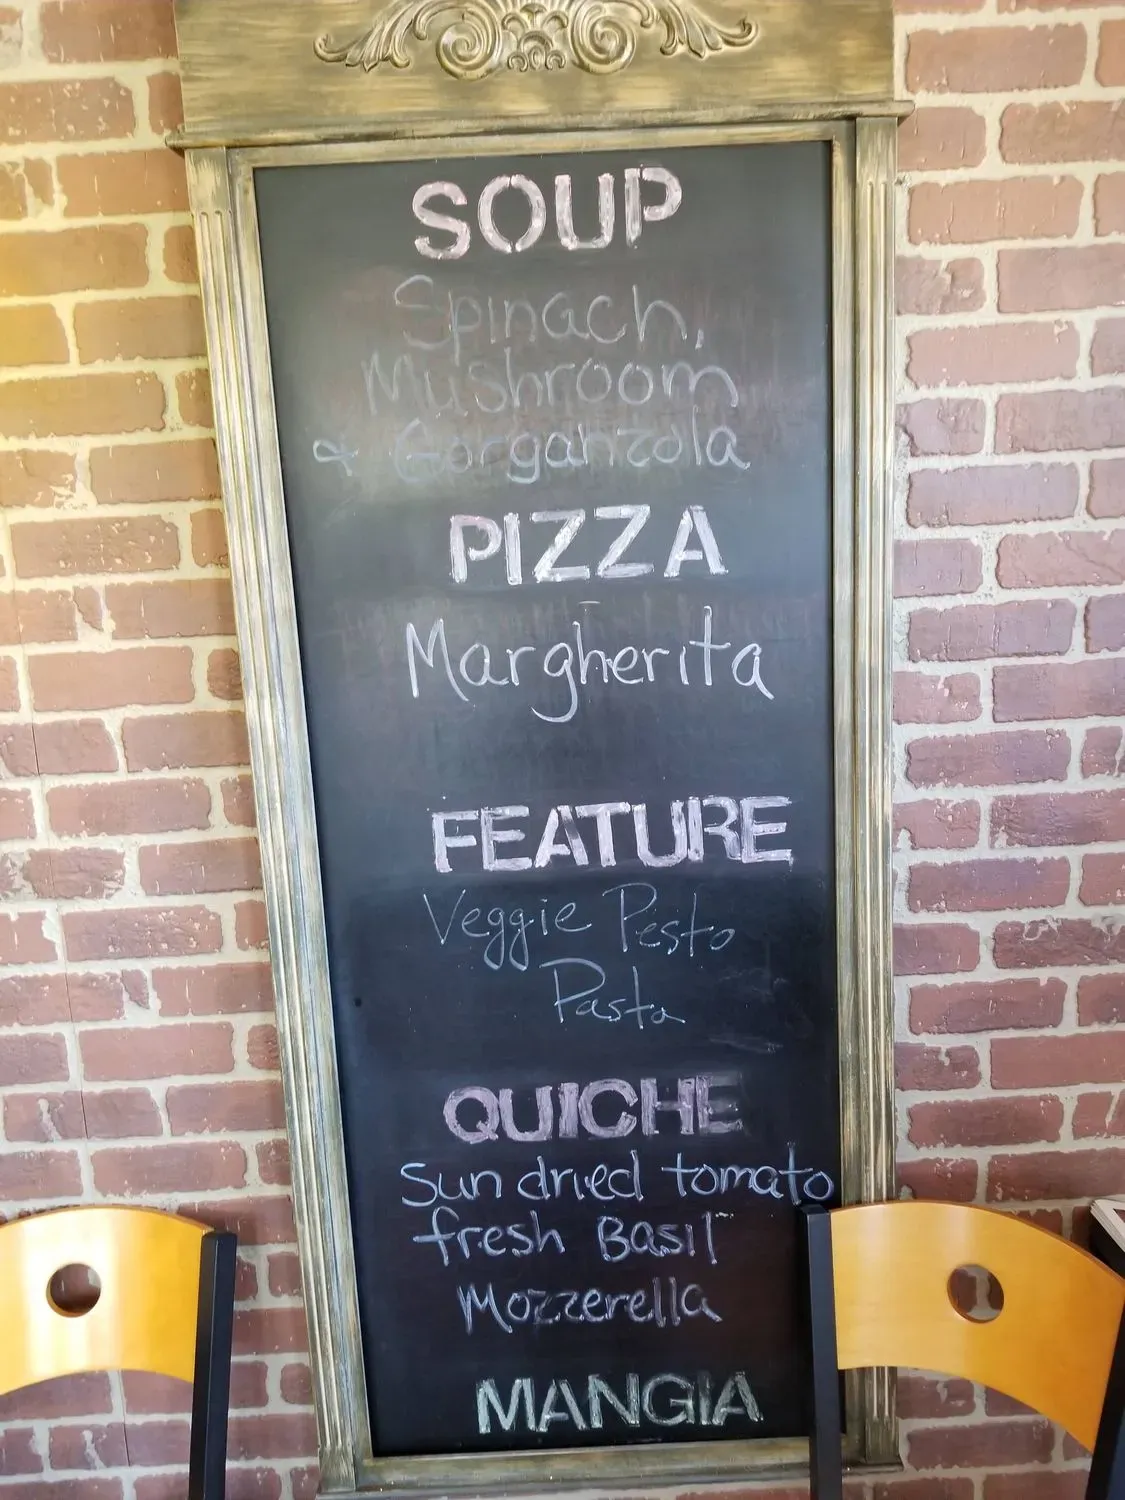 SOUP
Spinach,
Mushroom
& Gorganzola
PIZZA
Margherita
FEATURE
Veggie Pesto
Pasta
QUICHE
Sun dried tomato
fresh Basil
Mozzerella
MANGIA